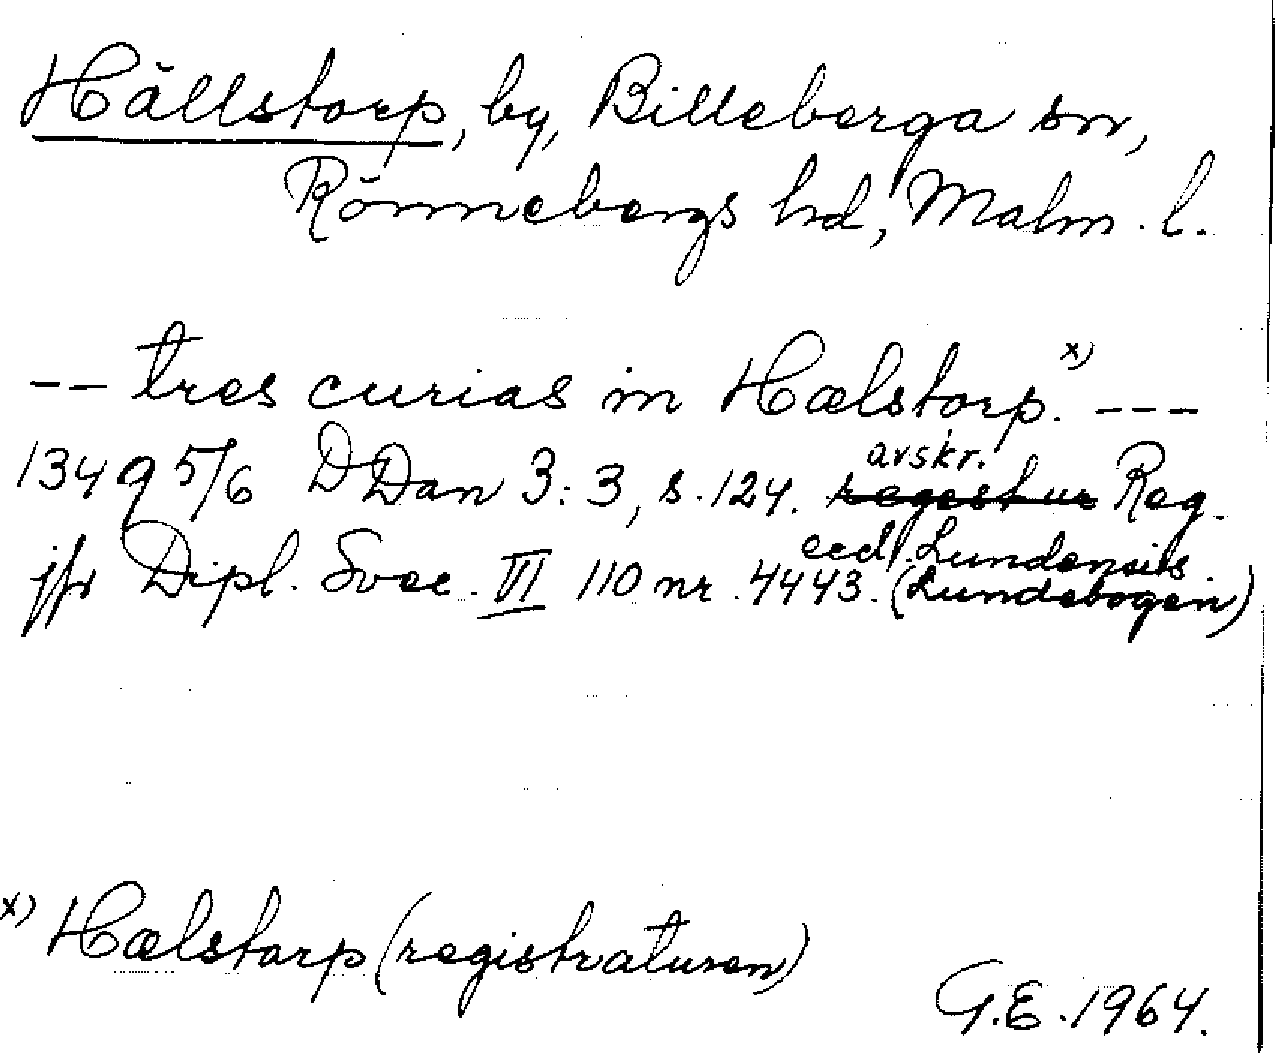 Hällstorp, by, Billeberga sn,
Rönnebergs hd, Malm. l.
-- tres curias in Hælstorp.x) ---
1349 5/6 DDan 3:3, s. 124. avskr. Reg.
jfr Dipl. Svec. VI 110 nr. 4443. eccl. Lundensis. (Lundebogen)
x) Hælstarp (registraturen)
G.E. 1964.